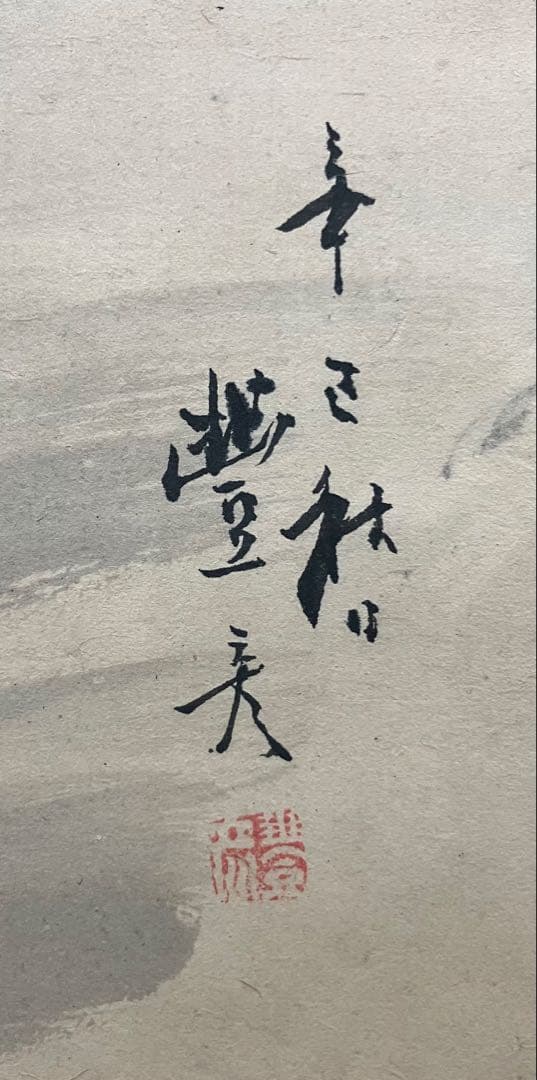 辛巳秋日
豐彦